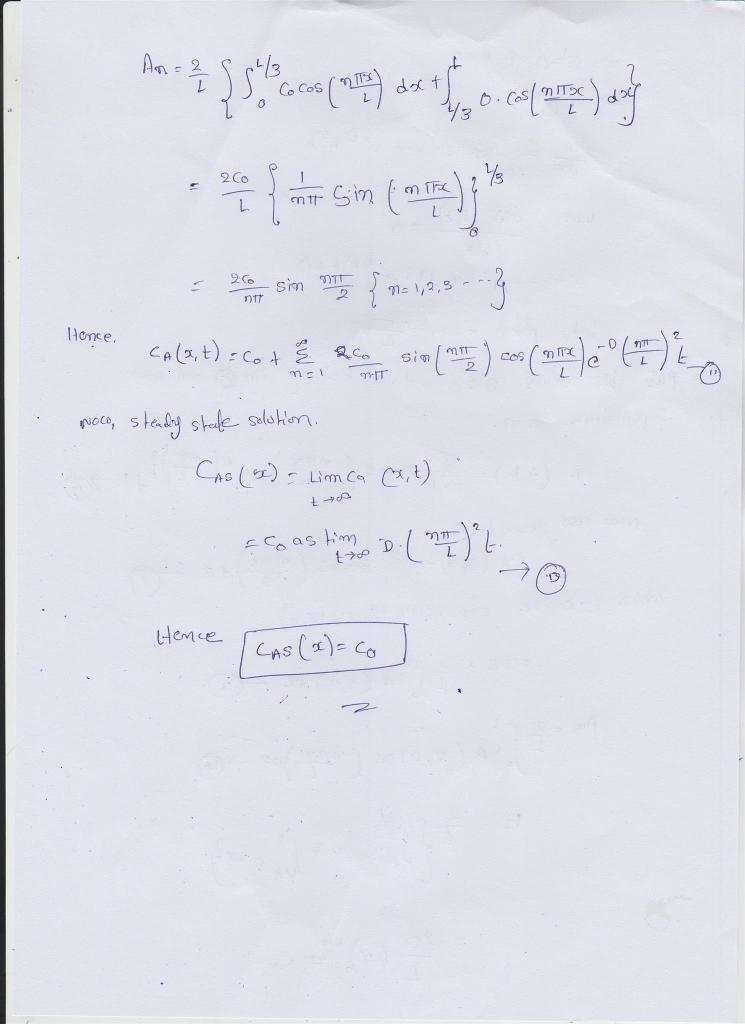 An = 2/L { ∫₀^{L/3} C₀ cos (nπx/L) dx + ∫_{L/3}^{L} 0 · cos (nπx/L) dx }
= 2C₀/L { 1/nπ sin (nπx/L) }₀^{L/3}
= 2C₀/nπ sin nπ/2 { n = 1,2,3 ---- }
Hence,
C_A(x,t) = C₀ + Σ_{n=1}^{∞} 2C₀/nπ sin (nπ/2) cos (nπx/L) e^{-D (nπ/L)² t} — ⑪
Now, steady state solution.
C_AS(x) = Lim_{t→∞} C_A (x,t)
= C₀ as lim_{t→∞} D · (nπ/L)² t.
→
Hence C_AS(x) = C₀